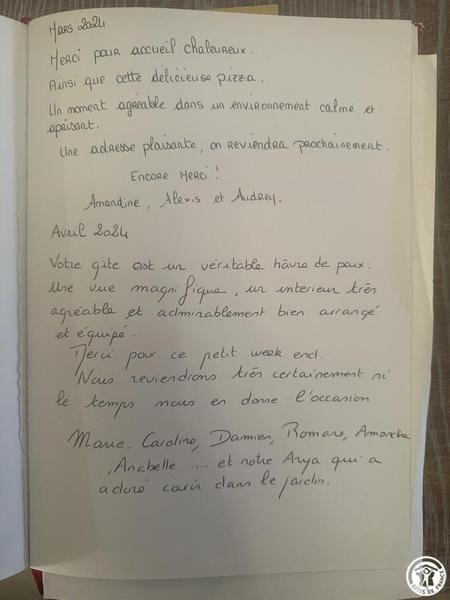 Mars 2024
Merci pour accueil chaleureux.
Ainsi que cette délicieuse pizza.
Un moment agréable dans un environnement calme et
apaisant.
Une adresse plaisante, on reviendra prochainement.
Encore Merci !
Amandine, Alexis et Audrey.
Avril 2024
Votre gîte est un véritable hâvre de paix.
Une vue magnifique, un interieur très
agréable et admirablement bien arrangé
et équipé.
Merci pour ce petit week end.
Nous reviendrons très certainement si
le temps nous en donne l'occasion
Marie, Caroline, Damien, Romane,
, Anabelle .... et notre Arya qui a
adoré courir dans le jardin.
GÎTES DE FRANCE